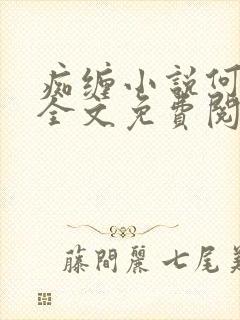 痴缠小说何
全文免費閱
藤間麗七尾美